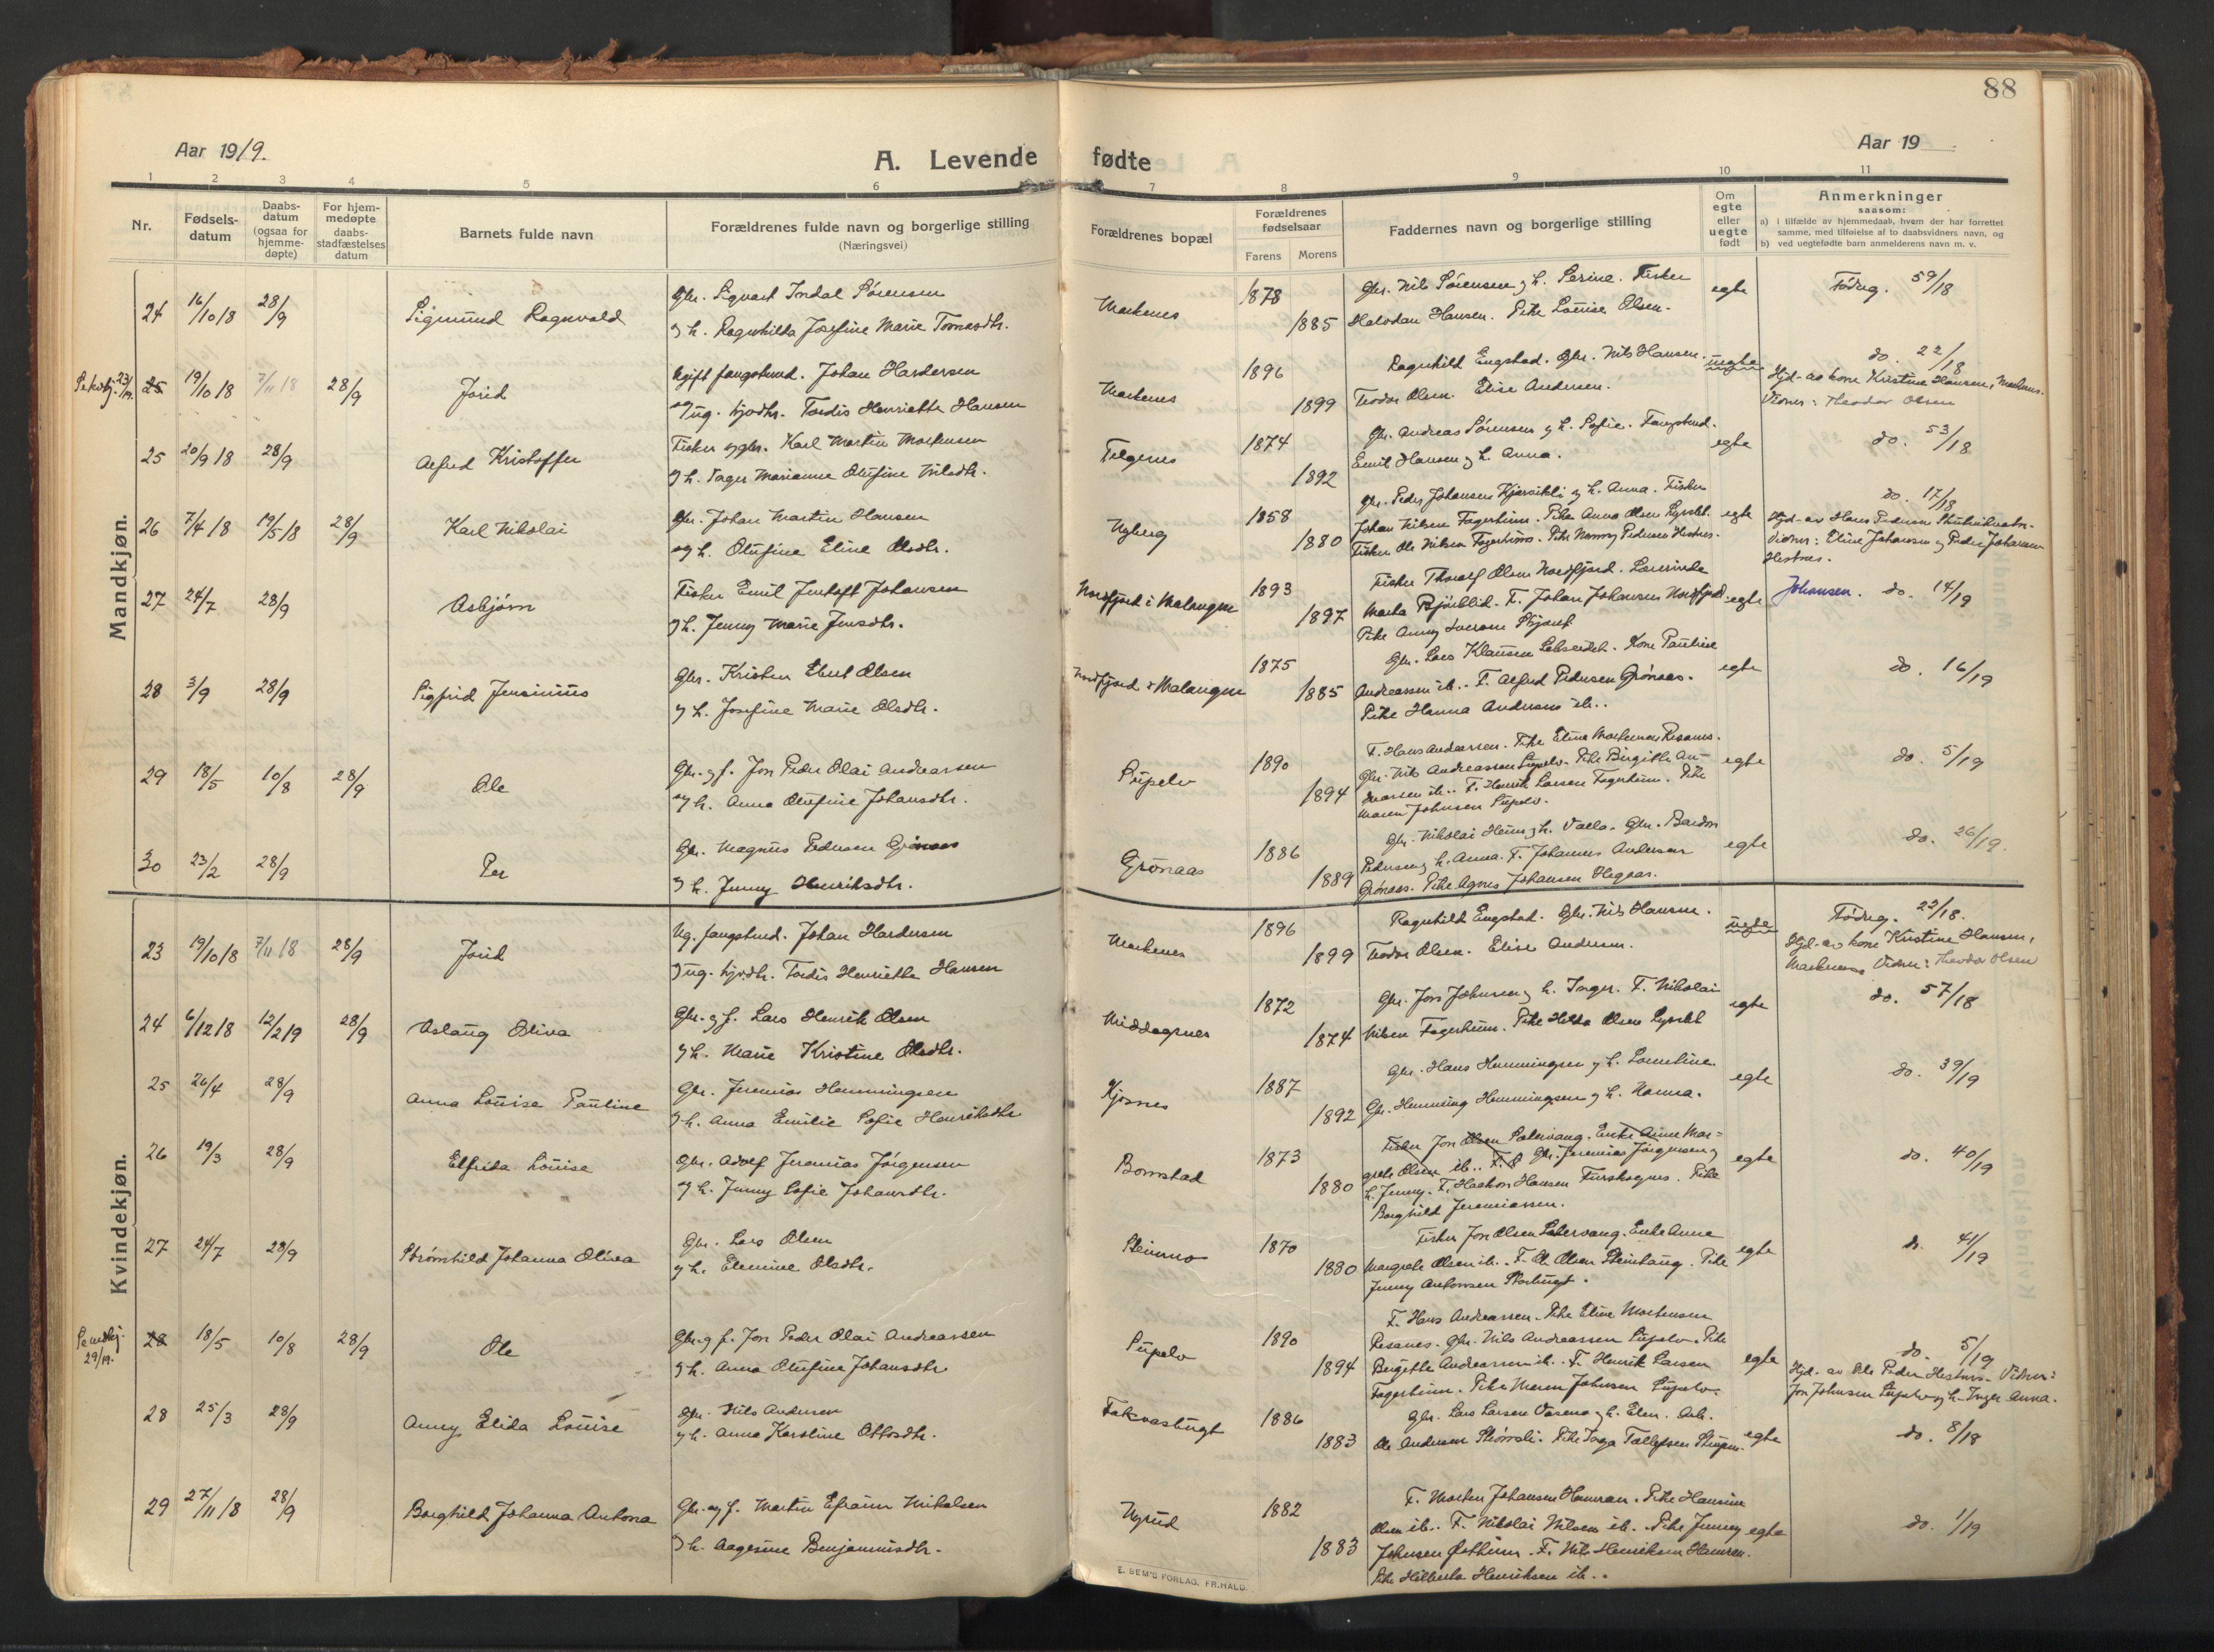 88
Aar 1919.
A. Levende fødte
Aar 19
1 2 3 4 5 6 7 8 9 10 11
Nr.
Fødsels-
datum
Daabs-
datum
(ogsaa for
hjemme-
døpte)
For hjem-
medøpte
daabs-
stadfæstelses
datum
Barnets fulde navn
Forældrenes fulde navn og borgerlige stilling
(Næringsvei)
Forældrenes bopæl
Forældrenes
fødselsaar
Farens Morens
Faddernes navn og borgerlige stilling
Om
egte
eller
uegte
født
Anmerkninger
saasom:
a) i tilfælde av hjemmedaab, hvem der har forrettet
samme, med tilføielse af to daabsvidners navn, og
b) ved uegtefødte barn anmelderens navn m. v.
Mandkjøn.
24 16/10 18 28/9 Sigmund Ragnvald
Gbr. Sigvart Indal Sørensen
og h. Ragnhilda Josefine Marie Tomasdtr.
Markenes 1878 1885
Gbr. Nils Sørensen og h. Serine. Fisker
Halvdan Hansen. Pike Louise Olsen.
egte Fødreg. 59/18
25 19/10 18 7/11 18 28/9 Jorid
Ugift fangstmand. Johan Hardersen
og ug. Tordis Henriette Hansen
Markenes 1896 1899
Ragnhild Engstad. Gbr. Nils Hansen.
Teodor Olsen. Elise Andersen.
uegte do. 22/18
Hjd. av kone Kristine Hansen, Markenes.
Vidner: Theodor Olsen
25 20/9 18 28/9 Alfred Kristoffer
Fisker og gbr. Karl Martin Mortensen
og h. Inger Marianne Olufine Nilsdtr.
1874 1892
Gbr. Andreas Sørensen og h. Sofie. Fangstmd.
Emil Hansen og h. Anna.
egte do. 53/18
26 7/4 18 19/5 18 28/9 Karl Nikolai
Gbr. Johan Martin Hansen
og h. Olufine Eline Olsdtr.
Nyberg 1858 1880
Gbr. Peder Johansen og h. Anna. Fisker
Johan Nilsen Fagerheim. Pike Anna Olsen
Fisker Ole Nilsen Fagerheim. Pike Pedersen Hestnes.
egte do. 17/18
Hjd. av Hans Pedersen
Vidner: Eline Johansen og Peder Johansen
Hestnes.
27 24/7 28/9 Asbjørn
Fisker Emil Jentoft Johansen
og h. Jenny Marie Jensdtr.
Nordfjord i Malangen 1893 1897
Fisker Olsen Nordfjord. Laurinda
Marta. F. Johan Johansen Nordfjord
Pike Anny
egte Johansen. do. 14/19
28 3/9 28/9 Sigfrid Jensinius
Gbr. Kristen Ebert Olsen
og h. Josefine Marie Olsdtr.
Nordfjord i Malangen 1875 1885
Gbr. Lars Klausen. Kone Pauline
Andreassen ib.. F. Alfred Pedersen Grönaas.
Pike Hanna Andersen ib..
egte do. 16/19
29 18/5 10/8 28/9 Ole
Gbr. og f. Jon Peder Olai Andreassen
og h. Anna Olufine Johansdtr.
Supelv 1890 1894
F. Hans Andreassen. Pike Eline Mortensen Resanes.
Gbr. Nils Andreassen Supelv. Pike Birgitte An-
dreassen ib.. F. Henrik Larsen Fagerheim. Pike
Maren Johnsen Supelv.
egte do. 5/19
30 23/2 28/9 Per
Gbr. Magnus Pedersen Grönaas
og h. Jenny Henriksdtr.
Grønaas 1886 1889
Gbr. Nikolai Heim og h. Valla. Gbr. Bardon
Pedersen og h. Anna. F. Johannes Andersen
Grönaas. Pike Agnes Johansen Hegaas.
egte do. 26/19.
Kvindekjøn.
23 19/10 18 7/11 18 28/9 Jorid
Ug. fangstmd. Johan Hardersen
og ug. Tordis Henriette Hansen
Markenes 1896 1899
Ragnhild Engstad. Gbr. Nils Hansen.
Teodor Olsen. Elise Andersen.
uegte Fødreg. 22/18.
Hjd. av kone Kristine Hansen,
Markenes Vidner: Theodor Olsen
24 6/12 18 12/2 19 28/9 Aslaug Oliva
Gbr. og f. Lars Henrik Olsen
og h. Marie Kristine Olsdtr.
Middagsnes 1872 1874
Gbr. Jon Johnsen og h. Inger. F. Nikolai
Nilsen Fagerheim. Pike Hilda Olsen
egte do. 57/18
25 26/4 28/9 Anna Louise Pauline
Gbr. Jeremias Hemmingsen
og h. Anna Emilie Sofie Henriksdtr
Kjosnes 1887 1892
Gbr. Hans Hemmingsen og h.
Gbr. Hemming Hemmingsen og h. Hanna.
egte do. 39/19
26 19/3 28/9 Elfrida Louise
Gbr. Adolf Jeremias Jørgensen
og h. Jenny Sofie Johansdtr.
Bomstad 1873 1880
Fisker Jon Olsen Sætervang. Enke Anne Mar-
grete Olsen ib.. Gbr. Jeremias Jörgensen og
h. Jenny. F. Haakon Hansen. Pike
Borghild Jeremiassen.
egte do. 40/19
27 24/7 28/9 Strømhild Johanna Oliva
Gbr. Lars Olsen
og h. Elenine Olsdtr.
Steinmo 1870 1880
Fisker Jon Olsen Sætervang. Enke Anne
Margrete Olsen ib.. F. Ole Olsen Steinhaug. Pike
Jenny Antonsen
egte do. 41/19
28 18/5 10/8 28/9 Ole
29/19.
Gbr. og f. Jon Peder Olai Andreassen
og h. Anna Olufine Johansdtr
Supelv 1890 1894
F. Hans Andreassen. Pike Eline Mortensen
Resanes. Gbr. Nils Andreassen Supelv. Pike
Birgitte Andreassen ib.. F. Henrik Larsen
Fagerheim. Pike Maren Johnsen Supelv.
egte do. 5/19
Hjd. av Ole Peder Hestnes. Vidner:
Jon Johnsen Supelv og h. Inger Anna.
28 25/3 28/9 Anny Elida Louise
Gbr. Nils Andersen
og h. Anna Karoline Ottosdtr.
Takvasbugt 1886 1883
Gbr. Lars Larsen og h. Elen. Arb.
Ole Andersen. Pike Inga Tollefsen
egte do. 8/18
29 27/11 18 28/9 Borghild Johanna Antona
Gbr. og f. Martin Efraim Nikolsen
og h. Aagesine Benjaminsdtr.
Nyrud 1882 1883
F. Morten Johansen. Pike Hansine
Olsen ib.. F. Nikolai Nilsen ib.. Pike Jenny
Johnsen. F. Nils Henriksen
Pike Henriksen ib..
egte do. 1/19
E. SEM'S FORLAG, FR.HALD.